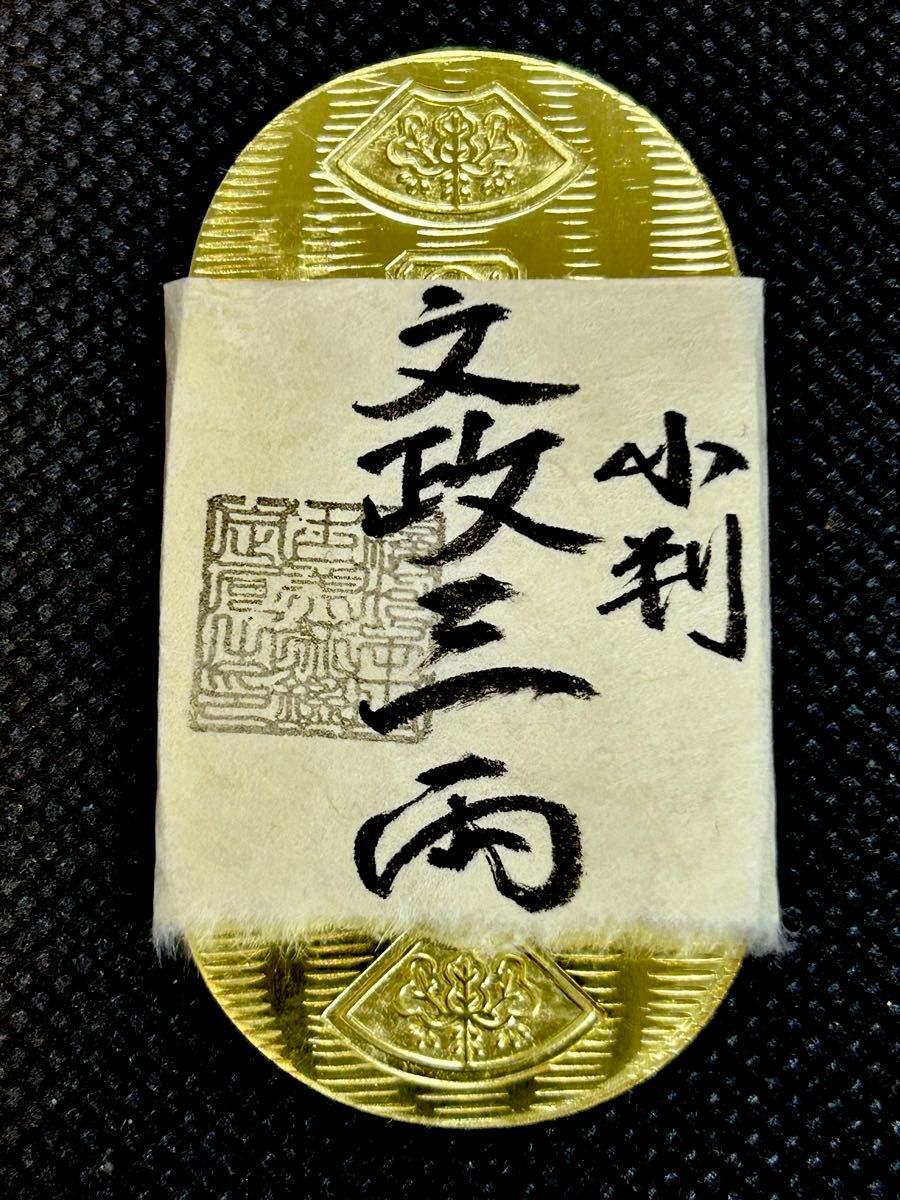 小判
文政三両